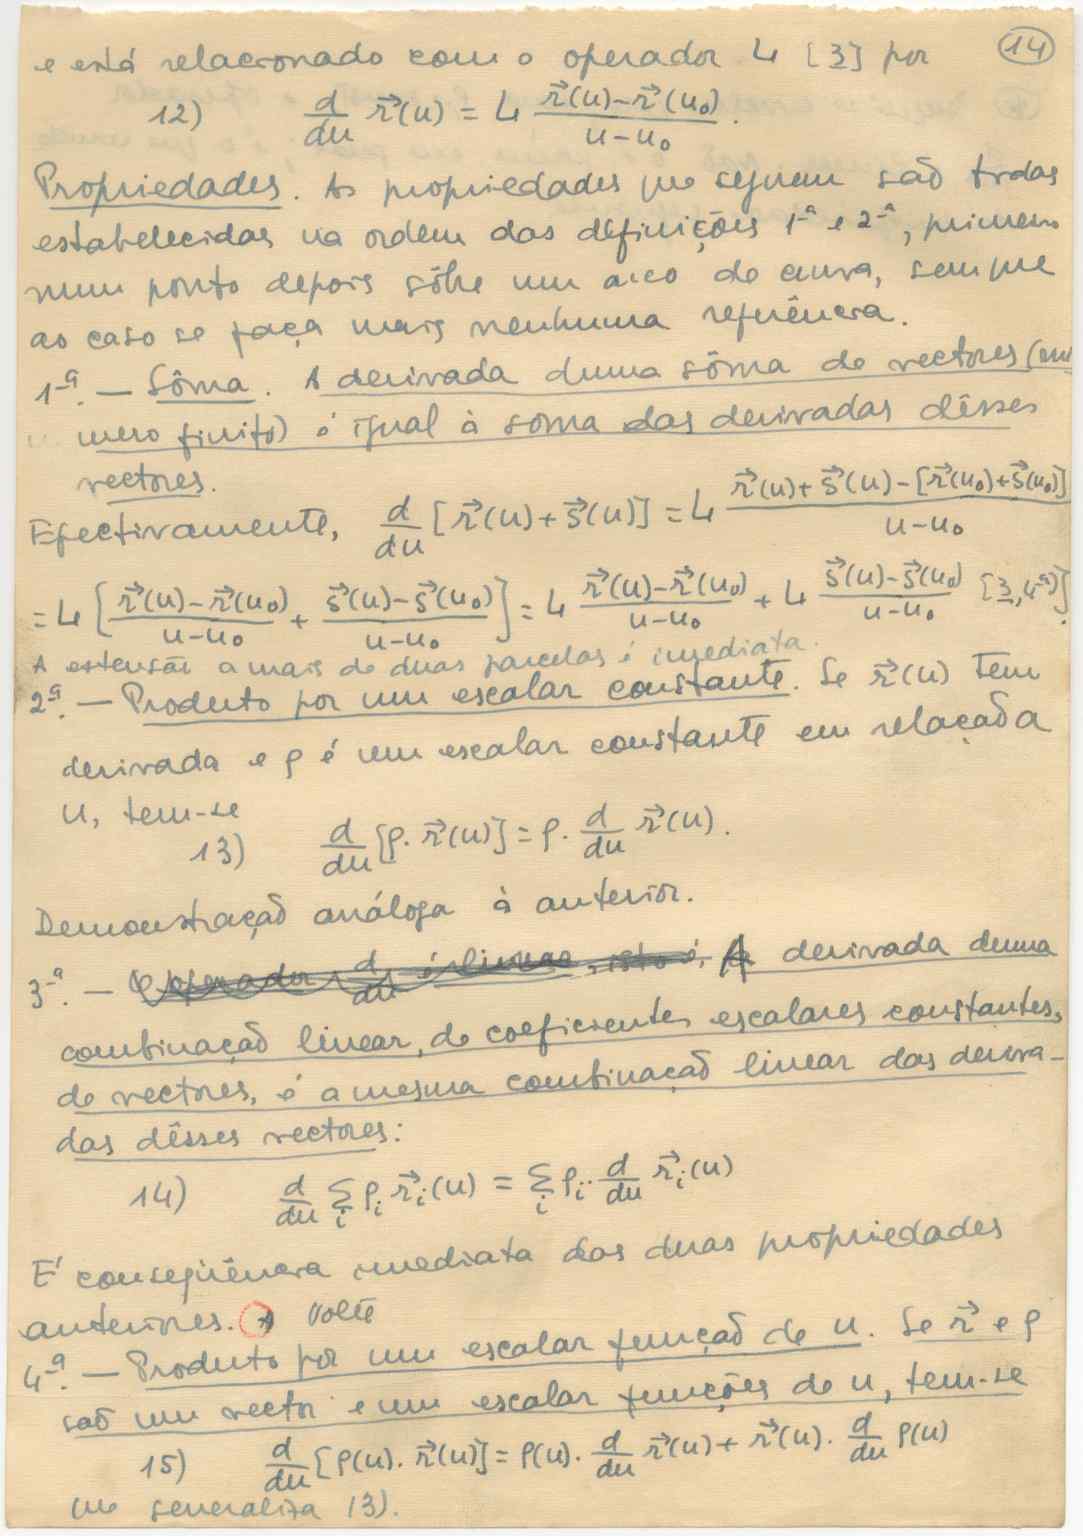 14
e está relacionado com o operador L [3] por
12) d/du r⃗(u) = L (r⃗(u)-r⃗(u₀))/(u-u₀).
Propriedades. As propriedades que seguem são todas
estabelecidas na ordem das definições 1-ª e 2-ª, primeiro
num ponto depois sôbre um arco de curva, sem que
ao caso se faça mais nenhuma referência.
1-ª. — Sôma. A derivada duma sôma de vectores (em nú
mero finito) é igual à soma das derivadas dêsses
vectores.
Efectivamente, d/du [r⃗(u)+s⃗(u)] = L (r⃗(u)+s⃗(u)-[r⃗(u₀)+s⃗(u₀)])/(u-u₀)
= L [(r⃗(u)-r⃗(u₀))/(u-u₀) + (s⃗(u)-s⃗(u₀))/(u-u₀)] = L (r⃗(u)-r⃗(u₀))/(u-u₀) + L (s⃗(u)-s⃗(u₀))/(u-u₀) [3,4-ª)].
A estensão a mais de duas parcelas é imediata.
2ª. — Produto por um escalar constante. Se r⃗(u) tem
derivada e ρ é um escalar constante em relação a
u, tem-se
13) d/du [ρ. r⃗(u)] = ρ. d/du r⃗(u).
Demonstração análoga à anterior.
3-ª. — O operador d/du é linear, isto é, A derivada duma
combinação linear, de coeficientes escalares constantes,
de vectores, é a mesma combinação linear das deriva-
das dêsses vectores:
14) d/du Σᵢ ρᵢ r⃗ᵢ(u) = Σᵢ ρᵢ. d/du r⃗ᵢ(u)
É conseqüência imediata das duas propriedades
anteriores. Volte
4-ª. — Produto por um escalar função de u. Se r⃗ e ρ
são um vector e um escalar funções de u, tem-se
15) d/du [ρ(u). r⃗(u)] = ρ(u). d/du r⃗(u) + r⃗(u). d/du ρ(u)
que generaliza 13).